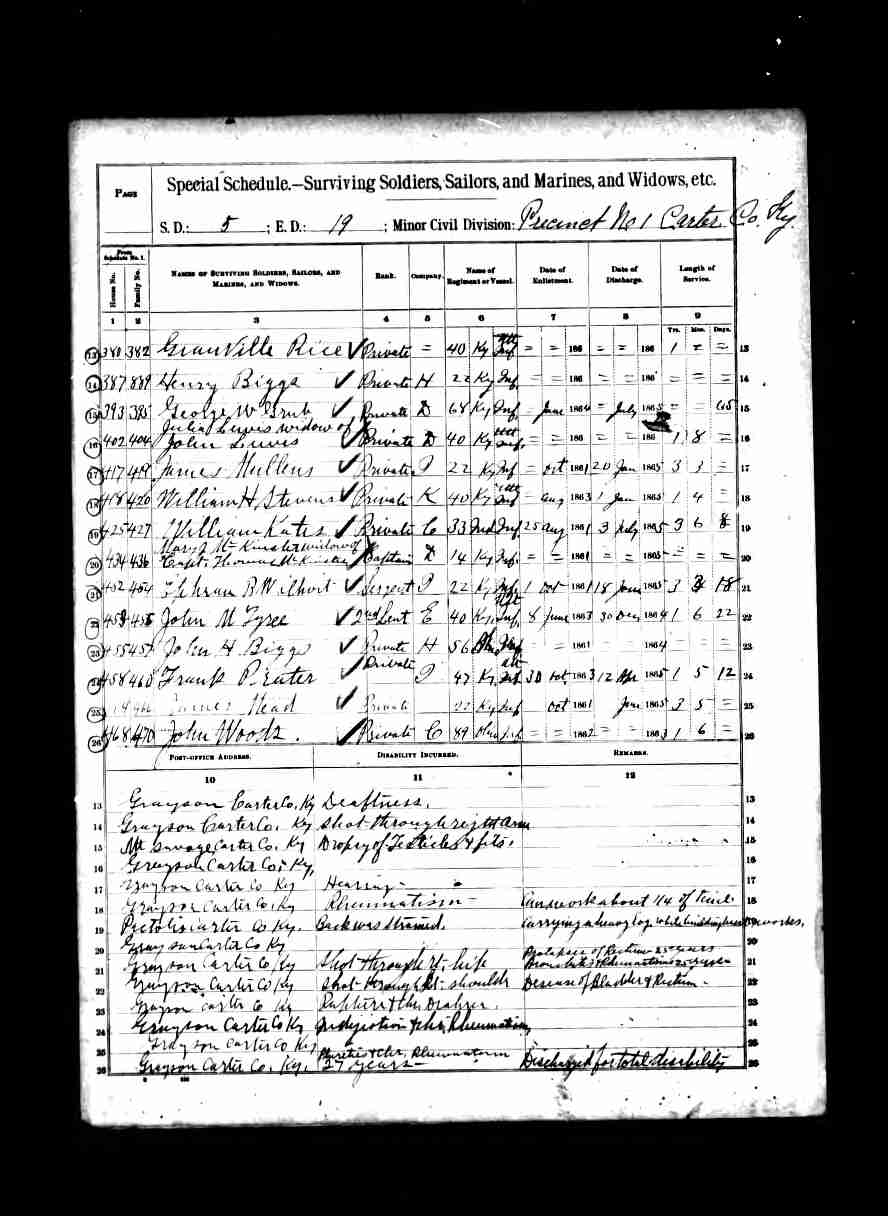 Special Schedule.—Surviving Soldiers, Sailors, and Marines, and Widows, etc.
PAGE
S. D.: 5 ; E. D.: 19 ; Minor Civil Division: Precinct No 1 Carter Co. Ky.
From Schedule No. 1.
House No. Family No. NAMES OF SURVIVING SOLDIERS, SAILORS, AND MARINES, AND WIDOWS. Rank. Company. Name of Regiment or Vessel. Date of Enlistment. Date of Discharge. Length of Service.
1 2 3 4 5 6 7 8 9
Yrs. Mos. Days.
13 380 382 Granville Rice Private = 40 Ky Inf = = 186 = = 186 1 = = 13
14 387 889 Henry Biggs Private H 22 Ky Inf = = 186 = = 186 = = = 14
15 393 395 George W Grub Private D 68 Ky Inf = June 1864 = July 1865 = = 15
Julia Lewis widow of
16 402 404 John Lewis Private D 40 Ky = = 186 = = 186 1 8 = 16
17 417 419 James Mullens Private I 22 Ky Inf = Oct 1861 20 Jan 1865 3 3 = 17
18 418 420 William H Stevens Private K 40 Ky Inf = Aug 1863 1 Jan 1865 1 4 = 18
19 425 427 William Kates Private C 33 Ind Inf 25 Aug 1861 3 July 1865 3 6 8 19
Mary J McKinster widow of
20 434 436 Capt. Thomas McKinster Captain D 14 Ky Inf = = 1861 = = 1865 = = = 20
21 452 454 Ephram B Wilhoit Sergent I 22 Ky Inf 1 Oct 1861 18 June 1865 3 18 21
22 453 455 John M Fyree 2nd Leut E 40 Ky Inf 8 June 1863 30 Dec 1864 1 6 22 22
23 455 457 John H Biggs Private H 56 Inf = = 1861 = = 1864 = = = 23
24 458 460 Frank Prater Private I 47 Ky 30 Oct 1863 12 Apr 1865 1 5 12 24
25 James Head Private 22 Ky Inf Oct 1861 June 1865 3 5 = 25
26 468 470 John Woods. Private C 89 Ohio Inf = = 1862 = = 1863 1 6 = 26
POST-OFFICE ADDRESS. DISABILITY INCURRED. REMARKS.
10 11 12
13 Grayson Carter Co, Ky Deaftness. 13
14 Grayson Carter Co. Ky Shot through right Arm 14
15 Mt Savage Carter Co. Ky Dropsy of Testicles & fits. 15
16 Grayson Carter Co. Ky, 16
17 Grayson Carter Co Ky Hearing 17
18 Grayson Carter Co. Ky Rheumatism Can work about 1/4 of time. 18
19 Pactolis Carter Co Ky. Back was strained. Carrying a heavy log while building works. 19
20 Grayson Carter Co Ky 20
21 Grayson Carter Co Ky Shot through rt. hip Prolapses of Rectum 25 years 21
22 Grayson Carter Co Ky Shot through Rt. shoulder Desease of Bladder & Rectum 22
23 Grayson Carter Co Ky Rupture & Chr. Diahrea. 23
24 Grayson Carter Co Ky Indigestion & chr. Rheumatism 24
25 Grayson Carter Co Ky 25
& Chr. Rheumatism
26 Grayson Carter Co. Ky. 27 years Discharged for total disability 26